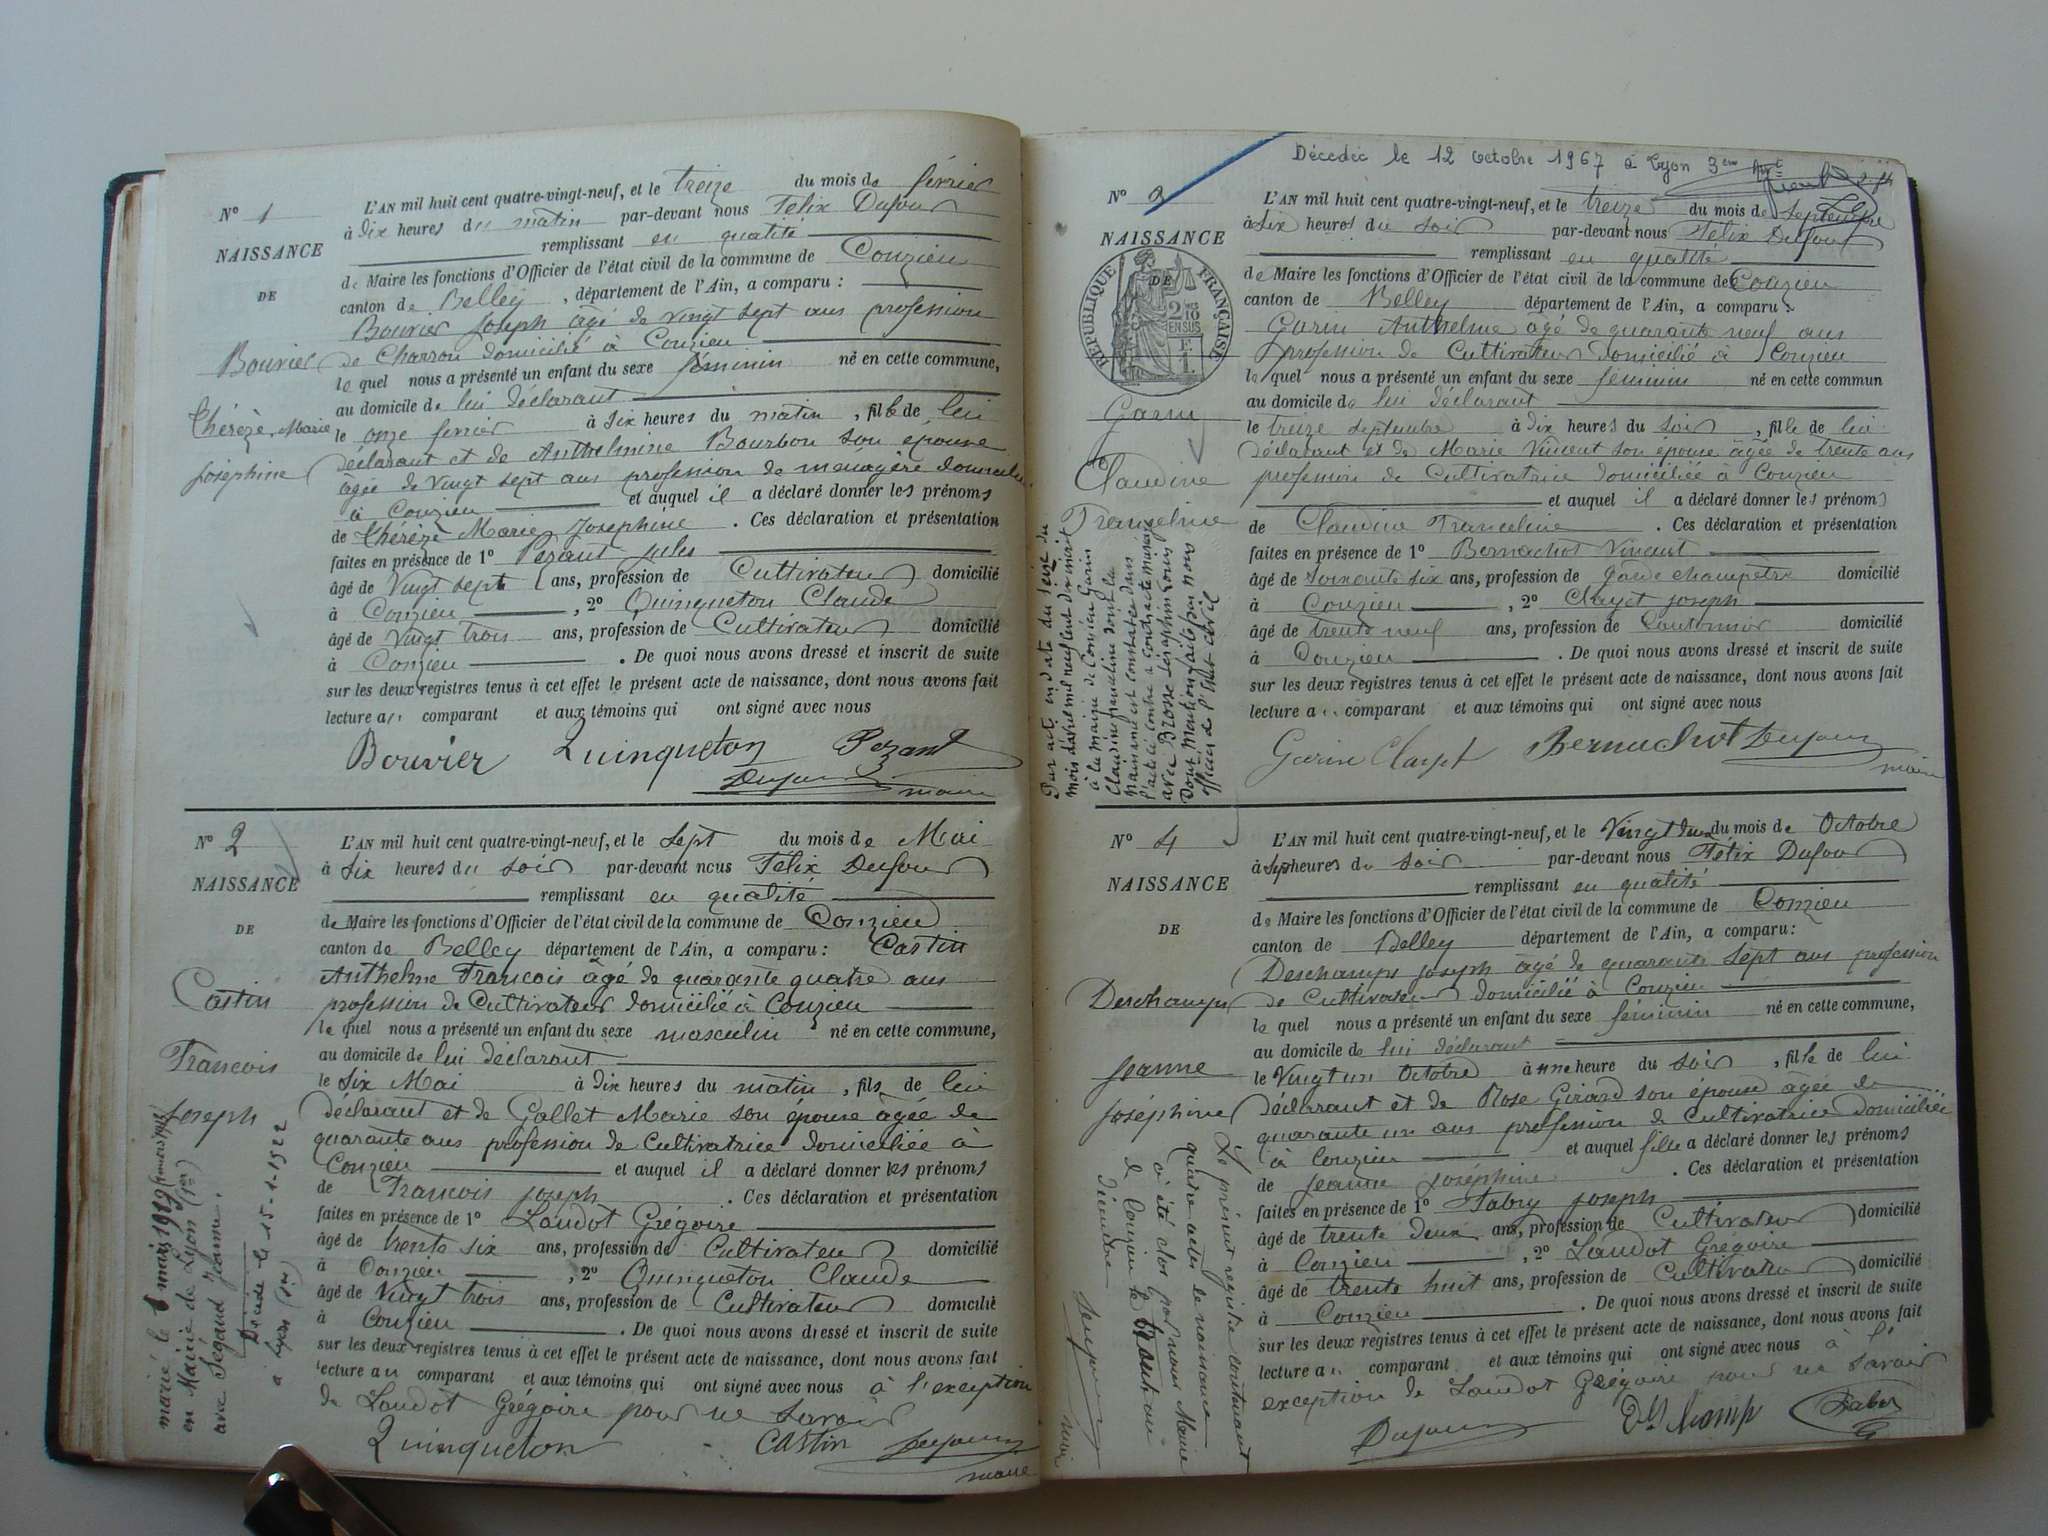 N° 1
NAISSANCE
DE
Bouvier
Thérèze Marie
Joséphine
L'AN mil huit cent quatre-vingt-neuf, et le treize du mois de février
à dix heures du matin par-devant nous Félix Dufour
remplissant en qualité
de Maire les fonctions d'Officier de l'état civil de la commune de Conzieu
canton de Belley, département de l'Ain, a comparu :
Bouvier Joseph âgé de vingt sept ans profession
de Charron domicilié à Conzieu
lequel nous a présenté un enfant du sexe féminin né en cette commune,
au domicile de lui déclarant
le onze fevrier à six heures du matin, fille de lui
déclarant et de Anthelmine Bourbon son épouse
âgée de vingt sept ans profession de ménagère domiciliée
à Conzieu et auquel il a déclaré donner les prénoms
de Thérèze Marie Joséphine. Ces déclaration et présentation
faites en présence de 1° Pezant Jules
âgé de vingt sept ans, profession de Cultivateur domicilié
à Conzieu, 2° Quinqueton Claude
âgé de vingt trois ans, profession de Cultivateur domicilié
à Conzieu. De quoi nous avons dressé et inscrit de suite
sur les deux registres tenus à cet effet le présent acte de naissance, dont nous avons fait
lecture au comparant et aux témoins qui ont signé avec nous
Bouvier Quinqueton Pezant
Dufour maire
N° 2
NAISSANCE
DE
Castin
Francois
Joseph
marié le 6 mars 1922
en Mairie de Lyon (1er)
avec Ségaud Jeanne.
Décédé le 15-1-1922
à Lyon
L'AN mil huit cent quatre-vingt-neuf, et le sept du mois de Mai
à six heures du soir par-devant nous Félix Dufour
remplissant en qualité
de Maire les fonctions d'Officier de l'état civil de la commune de Conzieu
canton de Belley département de l'Ain, a comparu : Castin
Anthelme Francois âgé de quarante quatre ans
profession de Cultivateur domicilié à Conzieu
lequel nous a présenté un enfant du sexe masculin né en cette commune,
au domicile de lui déclarant
le six Mai à dix heures du matin, fils de lui
déclarant et de Gallet Marie son épouse âgée de
quarante ans profession de Cultivatrice domiciliée à
Conzieu et auquel il a déclaré donner les prénoms
de Francois Joseph. Ces déclaration et présentation
faites en présence de 1° Laudot Grégoire
âgé de trente six ans, profession de Cultivateur domicilié
à Conzieu, 2° Quinqueton Claude
âgé de vingt trois ans, profession de Cultivateur domicilié
à Conzieu. De quoi nous avons dressé et inscrit de suite
sur les deux registres tenus à cet effet le présent acte de naissance, dont nous avons fait
lecture au comparant et aux témoins qui ont signé avec nous à l'exception
de Laudot Grégoire pour ne savoir
Quinqueton CASTIN Dufour
maire
Décédée le 12 Octobre 1967 à Lyon 3em
N° 3
NAISSANCE
DE
RÉPUBLIQUE FRANÇAISE
Garin
Claudine
Franceline
Par acte en date du seize du
mois d'avril mil neuf cent dix inscrit
à la mairie de Conzieu Garin
Claudine Franceline dont la
naissance est constatée dans
l'acte ci contre a contracté mariage
avec Brosse Séraphin Louis
Dont Mention faite par nous
officier de l'état civil
L'AN mil huit cent quatre-vingt-neuf, et le treize du mois de septembre
à six heures du soir par-devant nous Félix Dufour
remplissant en qualité
de Maire les fonctions d'Officier de l'état civil de la commune de Conzieu
canton de Belley département de l'Ain, a comparu :
Garin Anthelme âgé de quarante neuf ans
profession de Cultivateur domicilié à Conzieu
lequel nous a présenté un enfant du sexe féminin né en cette commun
au domicile de lui déclarant
le treize septembre à dix heures du soir, fille de lui
déclarant et de Marie Vincent son épouse âgée de trente ans
profession de Cultivatrice domiciliée à Conzieu
et auquel il a déclaré donner les prénoms
de Claudine Franceline. Ces déclaration et présentation
faites en présence de 1° Bernachot Vincent
âgé de soixante six ans, profession de garde champêtre domicilié
à Conzieu, 2° Clayet Joseph
âgé de trente neuf ans, profession de Cantonnier domicilié
à Conzieu. De quoi nous avons dressé et inscrit de suite
sur les deux registres tenus à cet effet le présent acte de naissance, dont nous avons fait
lecture au comparant et aux témoins qui ont signé avec nous
Garin Clayet Bernachot Dufour
maire
N° 4
NAISSANCE
DE
Deschamps
Jeanne
Joséphine
Le présent registre contenant
quatre actes de naissance
a été clos par nous Maire
de Conzieu le trente un
décembre
Dufour maire
L'AN mil huit cent quatre-vingt-neuf, et le vingt deux du mois de Octobre
à sept heures du soir par-devant nous Félix Dufour
remplissant en qualité
de Maire les fonctions d'Officier de l'état civil de la commune de Conzieu
canton de Belley département de l'Ain, a comparu :
Deschamps Joseph âgé de quarante sept ans profession
de Cultivateur domicilié à Conzieu
lequel nous a présenté un enfant du sexe féminin né en cette commune,
au domicile de lui déclarant
le vingt un Octobre à une heure du soir, fille de lui
déclarant et de Rose Girard son épouse âgée de
quarante un ans profession de Cultivatrice domiciliée
à Conzieu et auquel il a déclaré donner les prénoms
de Jeanne Joséphine. Ces déclaration et présentation
faites en présence de 1° Fabry Joseph
âgé de trente deux ans, profession de Cultivateur domicilié
à Conzieu, 2° Laudot Grégoire
âgé de trente huit ans, profession de Cultivateur domicilié
à Conzieu. De quoi nous avons dressé et inscrit de suite
sur les deux registres tenus à cet effet le présent acte de naissance, dont nous avons fait
lecture au comparant et aux témoins qui ont signé avec nous à l'
exception de Laudot Grégoire pour ne savoir
Dufour